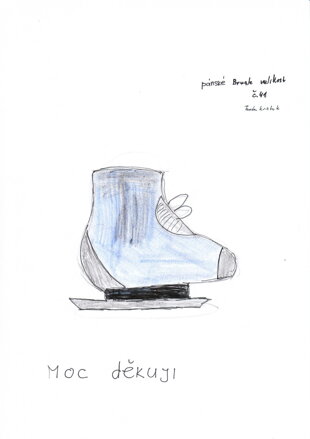 pánské Brusle velikost
č.41
Moc děkuji